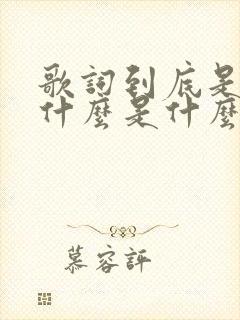 歌詞到底是
什麼是什麼
慕容評